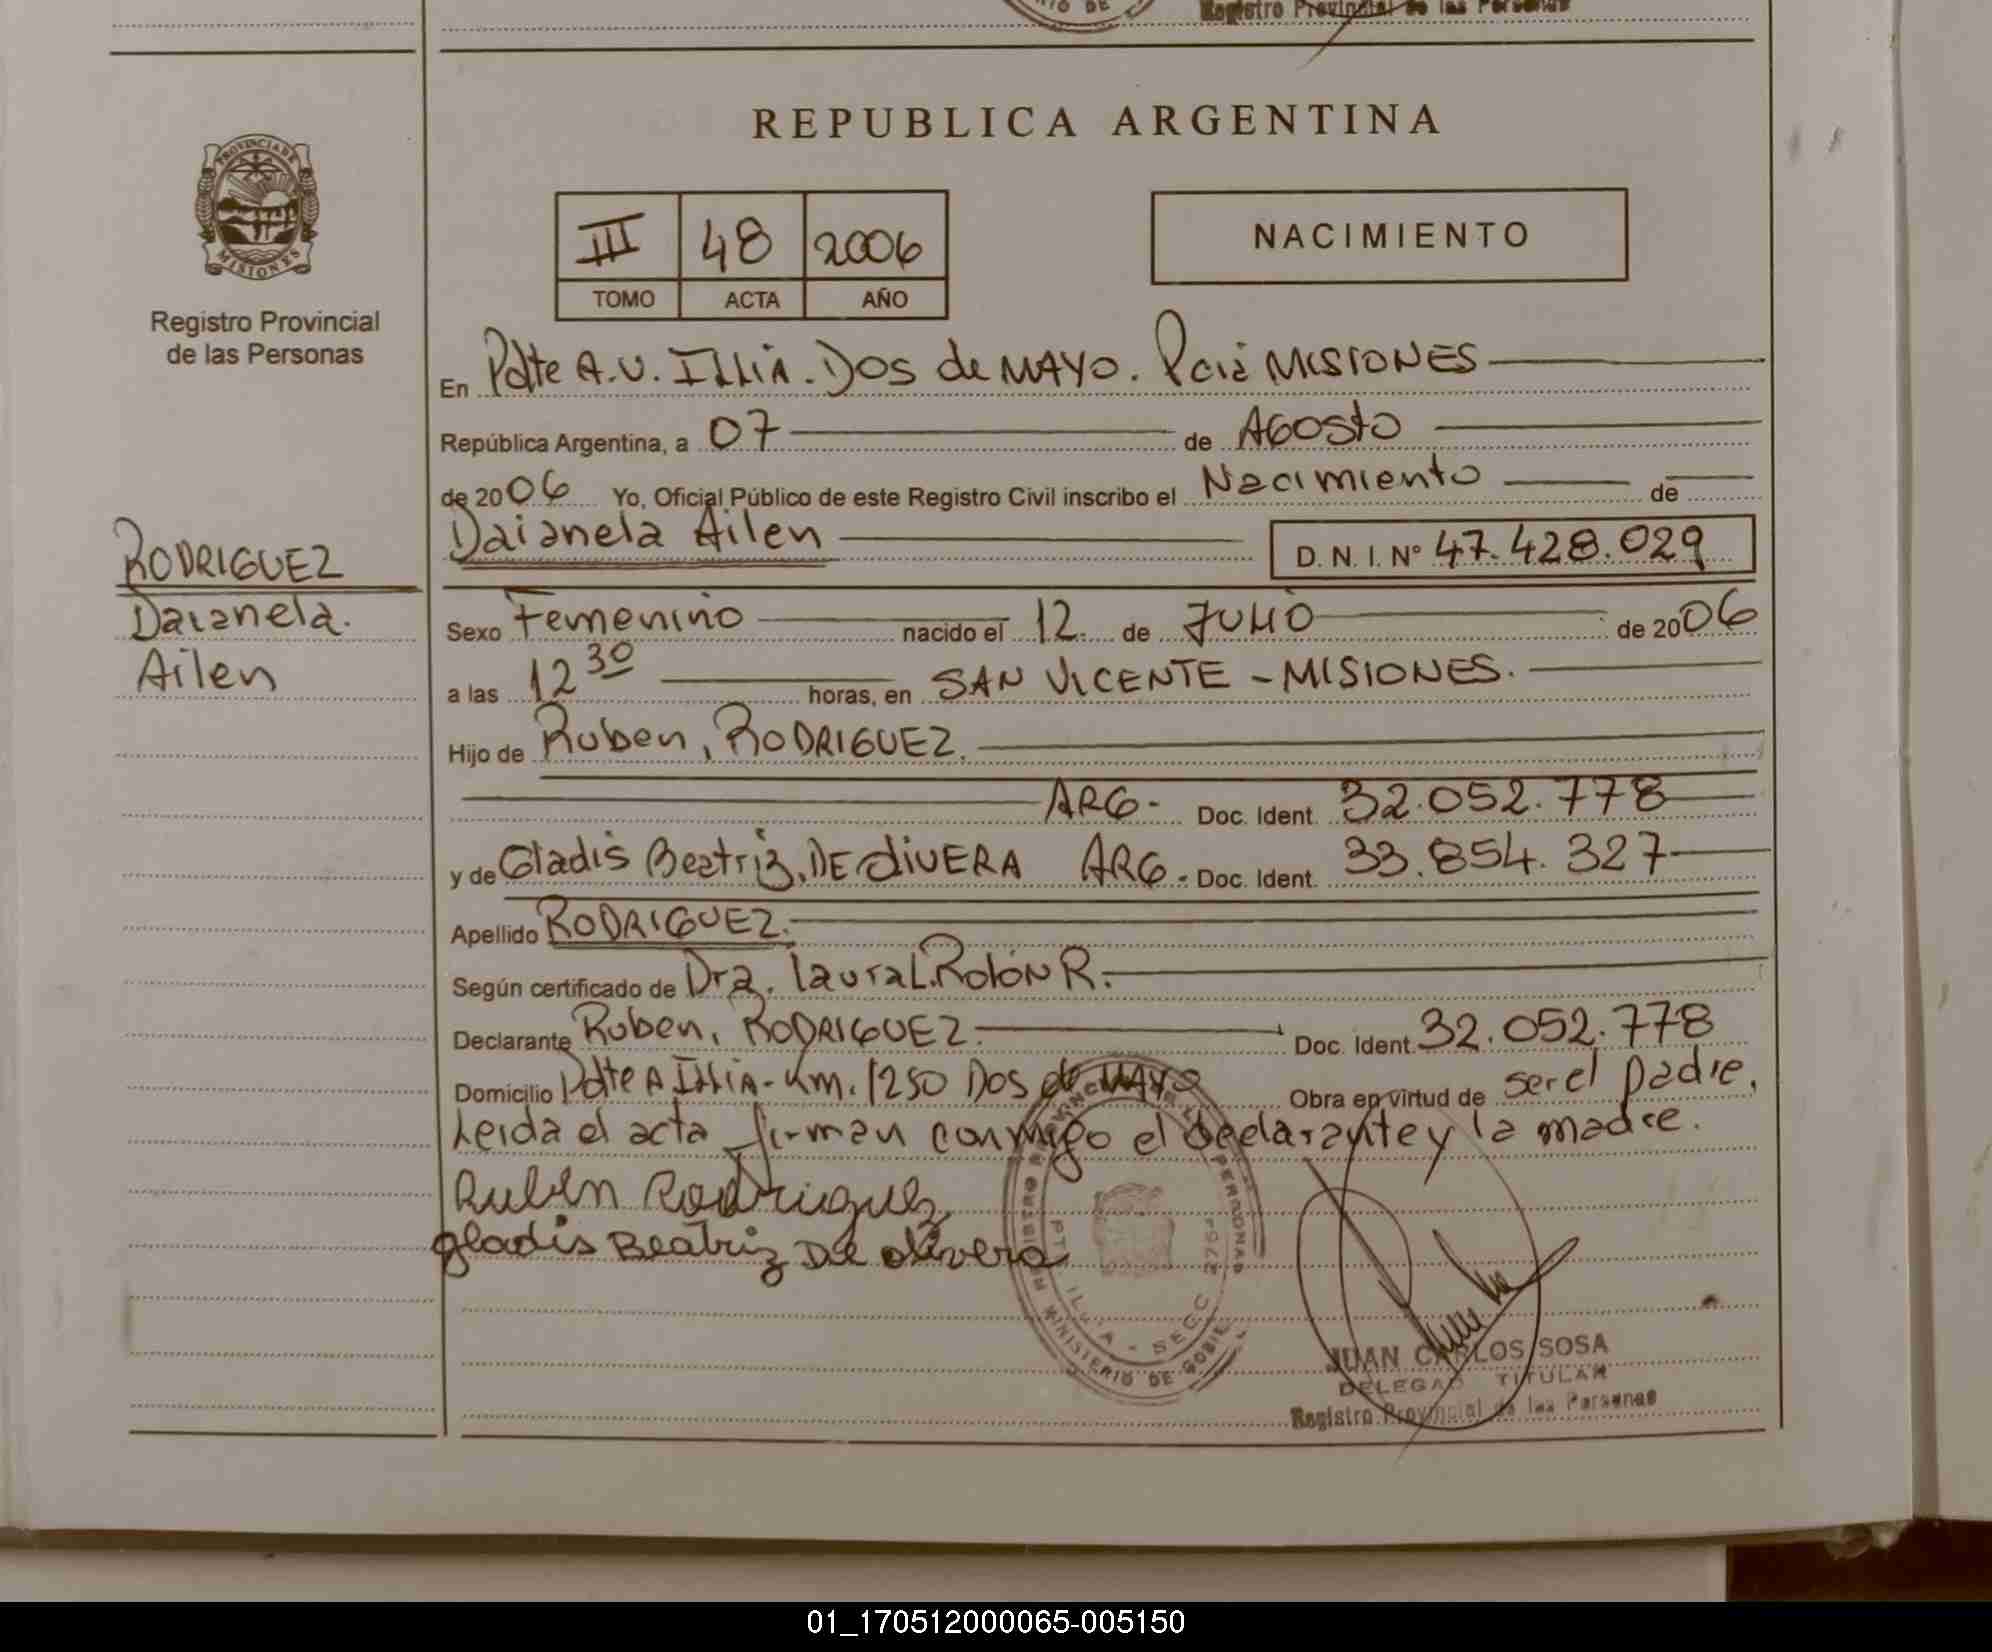 Registro Provincial de las Personas
REPUBLICA ARGENTINA
PROVINCIA DE
MISIONES
Registro Provincial
de las Personas
III 48 2006
TOMO ACTA AÑO
NACIMIENTO
En Pdte A.U. ILLIA. DOS de MAYO. Pcia MISIONES
República Argentina, a 07 de AGOSto
de 2006 Yo, Oficial Público de este Registro Civil inscribo el Nacimiento de
RODRIGUEZ
Daianela.
Ailen
Daianela Ailen D. N. I. Nº 47.428.029
Sexo Femenino nacido el 12 de JULIO de 2006
a las 12 30 horas, en SAN VICENTE - MISIONES.
Hijo de Ruben, RODRIGUEZ.
ARG- Doc. Ident. 32.052.778
y de Gladis Beatriz, DE oliVERA ARG- Doc. Ident. 33.854.327
Apellido RODRIGUEZ.
Según certificado de Dra. laura L. Rolón R.
Declarante Ruben, RODRIGUEZ. Doc. Ident. 32.052.778
Domicilio Pdte A ILLIA- Km. 1250 DOS de MAYO Obra en virtud de ser el padre.
Leida el acta firman conmigo el declarante y la madre.
Ruben Rodriguez
gladis Beatriz De olivera
JUAN CARLOS SOSA
DELEGADO TITULAR
Registro Provincial de las Personas
01_170512000065-005150